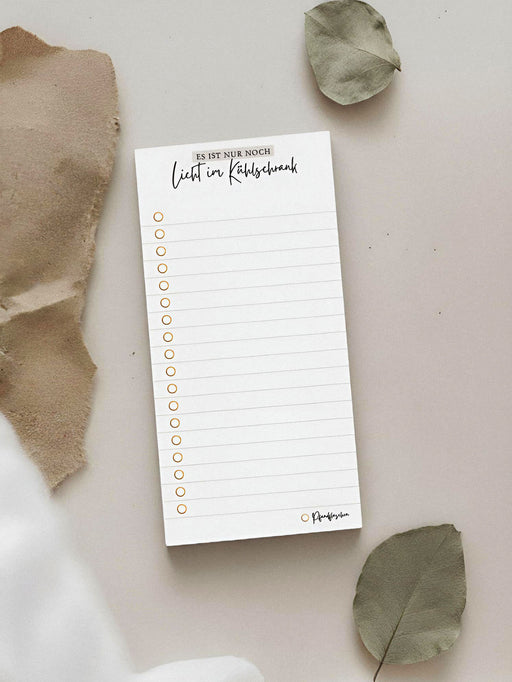 ES IST NUR NOCH
Licht im Kühlschrank
Pfandflaschen